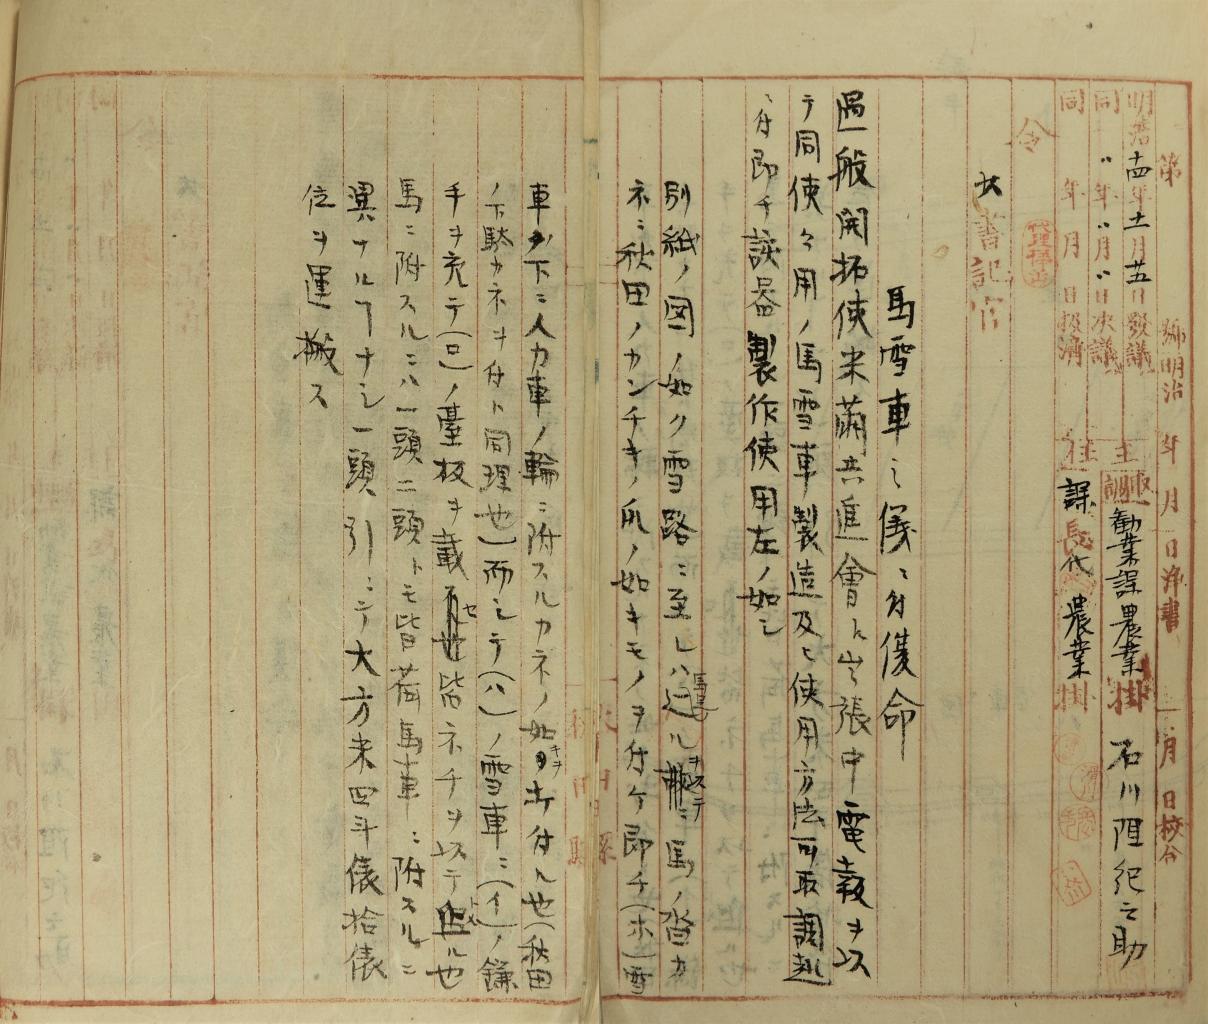 第 號明治 年 月 日淨書 月 日校合
明治十四年十一月廿五日發議
同 〃年〃月〃日決議
同 年 月 日掫濟
主任
勸業課農業掛 石川阻紀之助
課長代 農業掛
令
代理
大書記官
馬雪車之儀ニ付復命
過般開拓使米繭共進會ヘ出張中電報ヲ以
テ同使ニ用ノ馬雪車製造及ヒ使用方法可取調趣
ニ付即チ該器製作使用左ノ如シ
別紙ノ図ノ如ク雪路ニ至レハ馬ノ沓カ
ネニ秋田ノカンチキノ爪ノ如キモノヲ付ケ即チ(ホ)雪
車ノ下ニ人力車ノ輪ニ附スルカネノ如キヲ打付ル也(秋田
ノ下駄カネヲ付ト同理也)而シテ(ハ)ノ雪車ニ(イ)ノ鎌
手ヲ充テ(ロ)ノ臺板ヲ載セ皆ネチヲ以テ ル也
馬ニ附スルニハ一頭二頭トモ皆荷馬車ニ附スルニ
異ナルヿナシ一頭引ニテ大方米四斗俵拾俵
位ヲ運搬ス
秋田縣